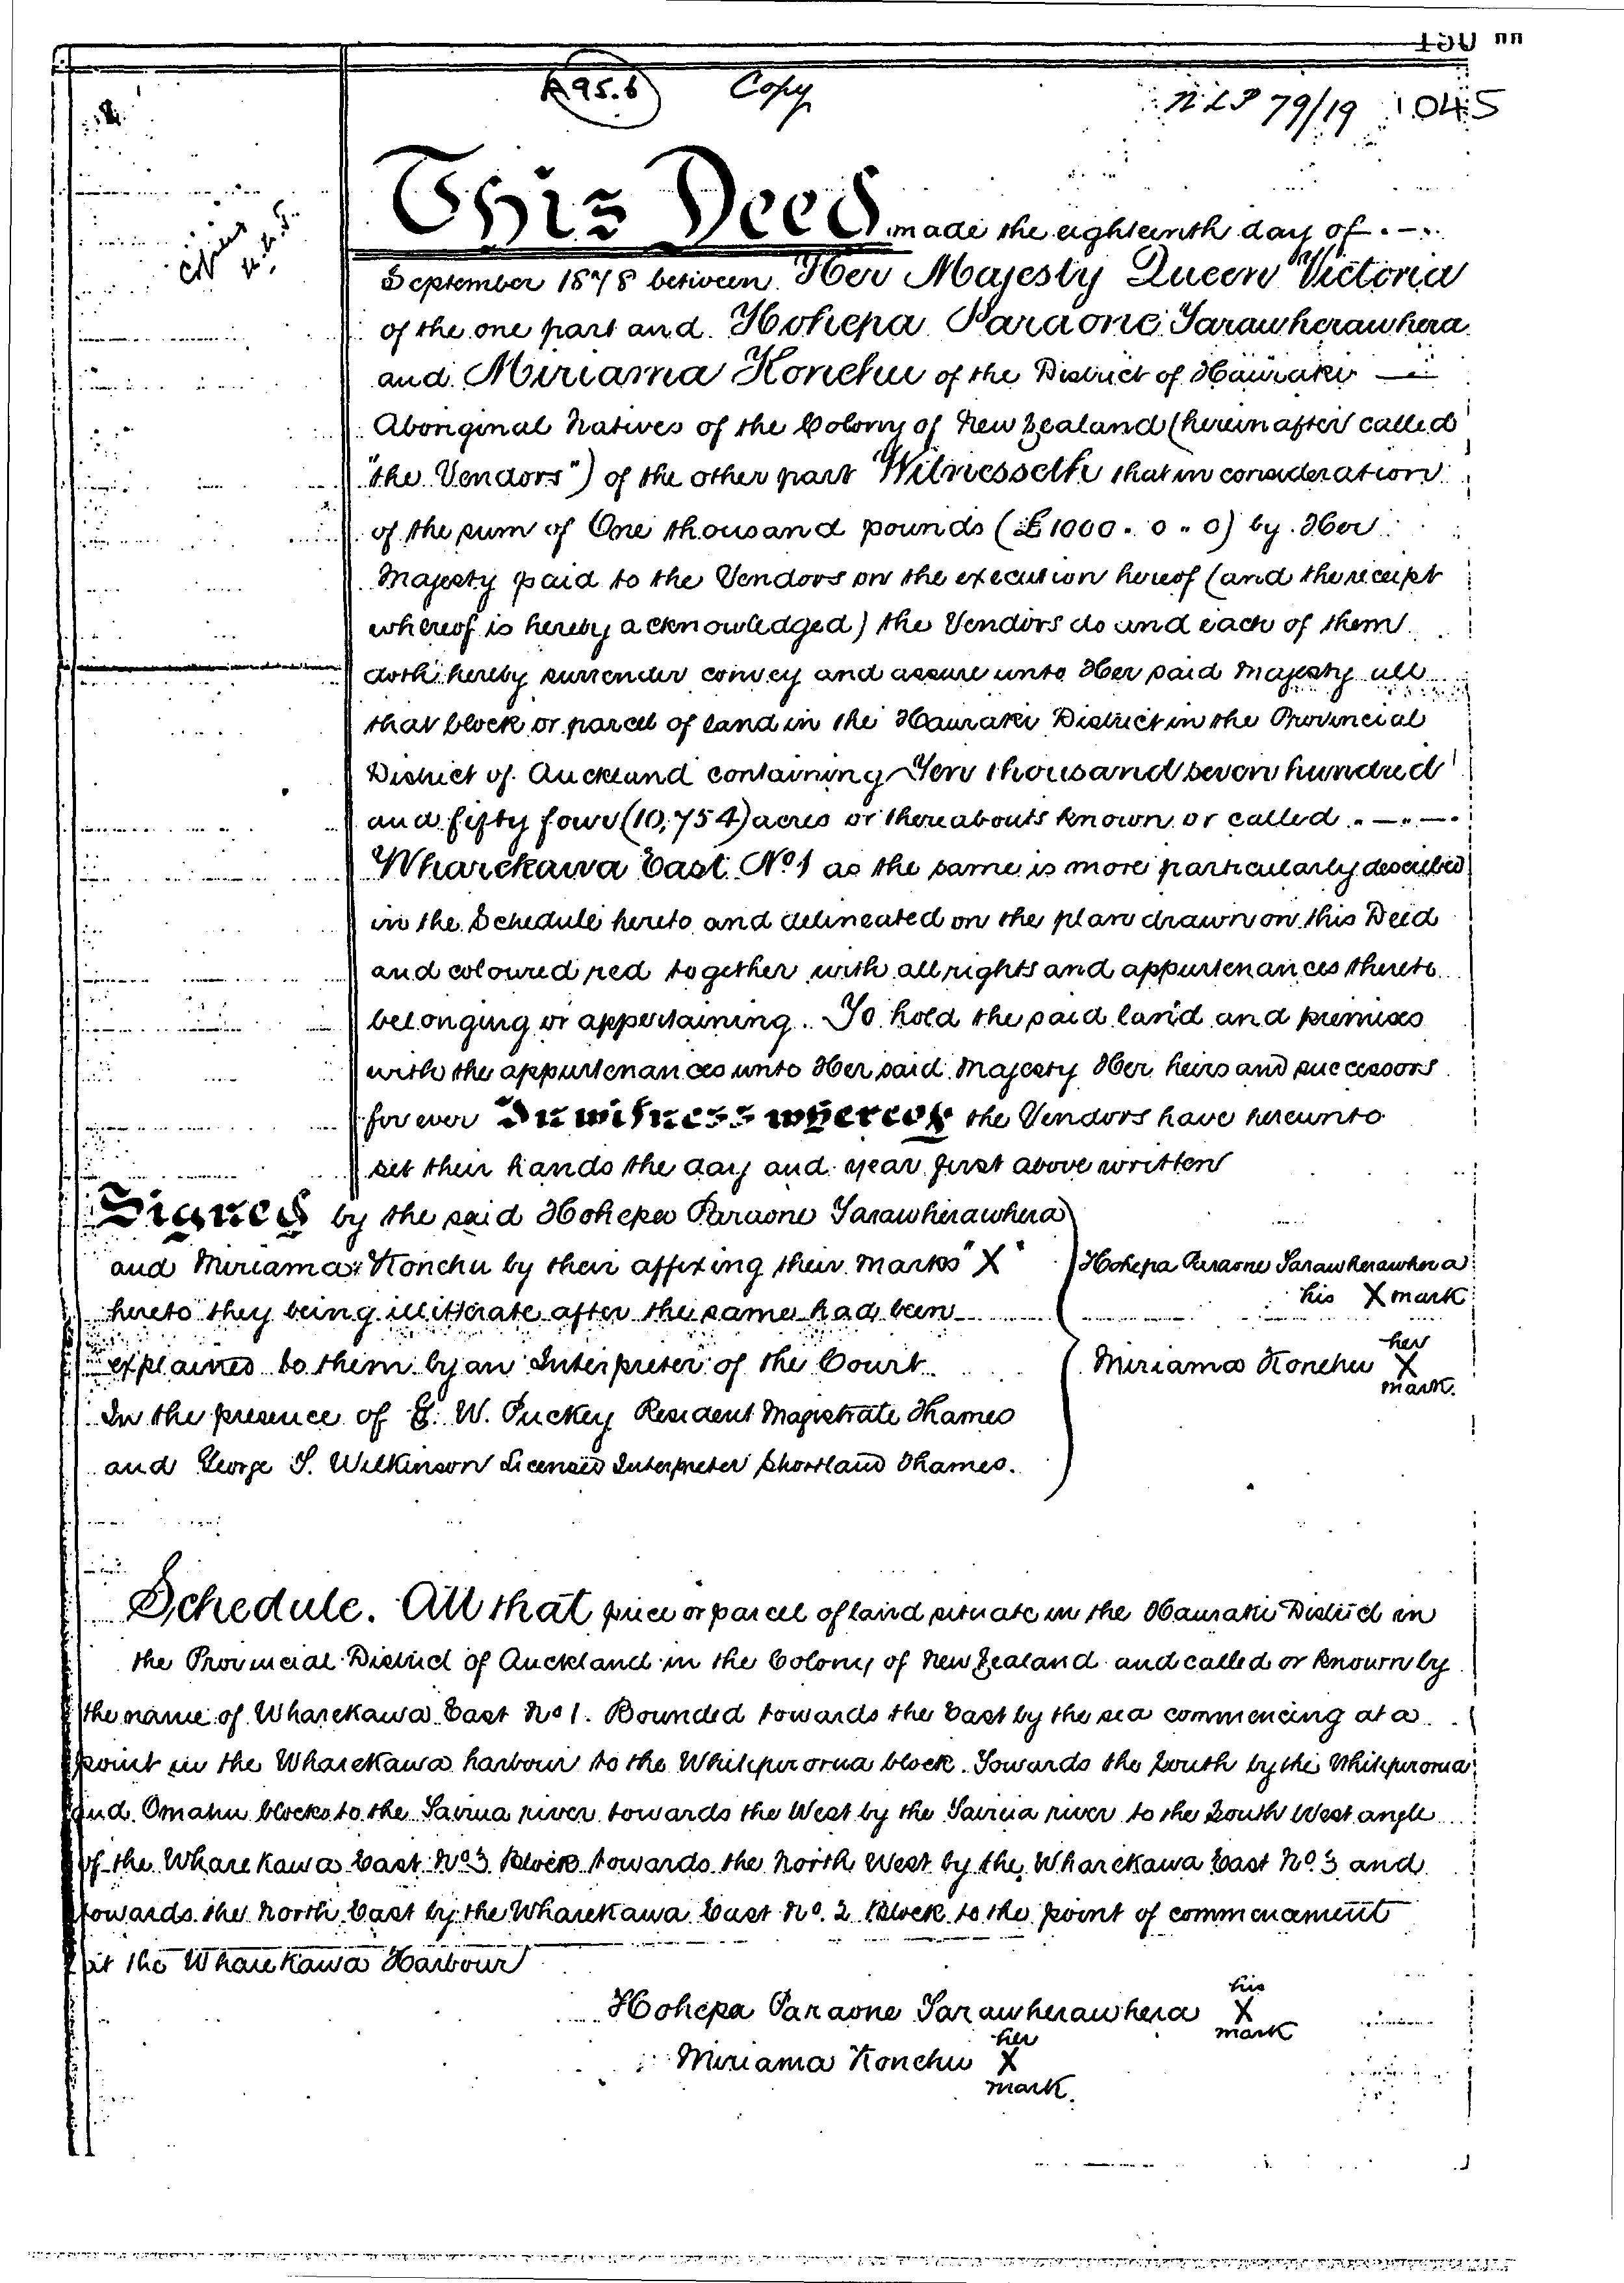 A95.6 Copy NLP 79/19 1045
This Deed made the eighteenth day of
September 1878 between Her Majesty Queen Victoria
of the one part and Hohepa Paraone Tarawherawhera
and Miriama Konehu of the District of Hauraki
Aboriginal Natives of the Colony of New Zealand (hereinafter called
"the Vendors") of the other part Witnesseth that in consideration
of the sum of One thousand pounds (£1000. 0 . 0) by Her
Majesty paid to the Vendors on the execution hereof (and the receipt
whereof is hereby acknowledged) the Vendors do and each of them
doth hereby surrender convey and assure unto Her said Majesty all
that block or parcel of land in the Hauraki District in the Provincial
District of Auckland containing Ten thousand seven hundred
and fifty four (10,754) acres or thereabouts known or called
Wharekawa East No 1 as the same is more particularly described
in the Schedule hereto and delineated on the plan drawn on this Deed
and coloured red together with all rights and appurtenances thereto
belonging or appertaining. To hold the said land and premises
with the appurtenances unto Her said Majesty Her heirs and successors
for ever In witness whereof the Vendors have hereunto
set their hands the day and year first above written
Signed by the said Hohepa Paraone Tarawherawhera
and Miriama Konehu by their affixing their marks "X"
hereto they being illitterate after the same had been
explained to them by an Interpreter of the Court
In the presence of E. W. Puckey Resident Magistrate Thames
and George T. Wilkinson Licensed Interpreter Shortland Thames.
Hohepa Paraone Tarawherawhera
his X mark
her
Miriama Konehu X
mark.
Schedule. All that piece or parcel of land situate in the Hauraki District in
the Provincial District of Auckland in the Colony of New Zealand and called or known by
the name of Wharekawa East No 1. Bounded towards the East by the sea commencing at a
point in the Wharekawa harbour to the Whitipirorua block. Towards the South by the Whitipirorua
and Omahu blocks to the Tairua river towards the West by the Tairua river to the South West angle
of the Wharekawa East No 3 Block towards the North West by the Wharekawa East No. 3 and
towards the North East by the Wharekawa East No. 2 Block to the point of commencement
at the Wharekawa Harbour
his
Hohepa Paraone Tarawherawhera X
mark
her
Miriama Konehu X
mark.